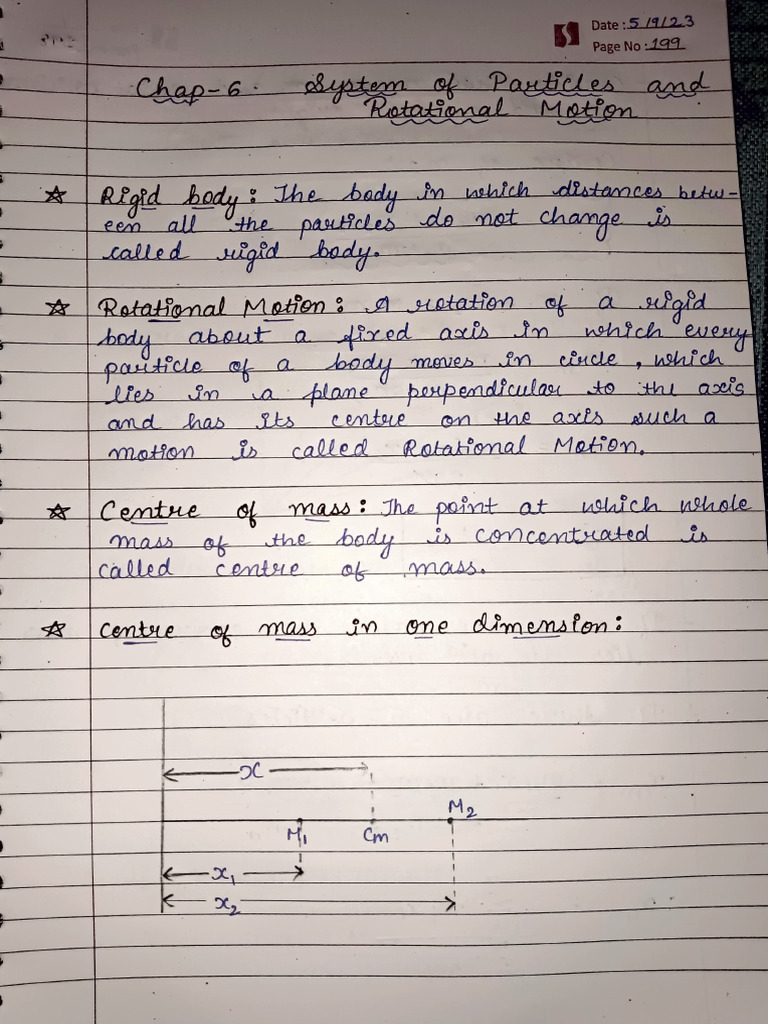 Date : 5/9/23
Page No : 199
Chap-6. System of Particles and
Rotational Motion
☆ Rigid body : The body in which distances betw-
een all the particles do not change is
called rigid body.
☆ Rotational Motion : A rotation of a rigid
body about a fixed axis in which every
particle of a body moves in circle, which
lies in a plane perpendicular to the axis
and has its centre on the axis such a
motion is called Rotational Motion.
☆ Centre of mass : The point at which whole
mass of the body is concentrated is
called centre of mass.
☆ Centre of mass in one dimension :
x
M₂
M₁ Cm
x₁
x₂